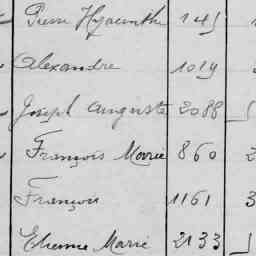 Pierre Hyacinthe 145
Alexandre 1019
Joseph Auguste 2088
François Marie 860 2
François 1161 3
Etienne Marie 2133